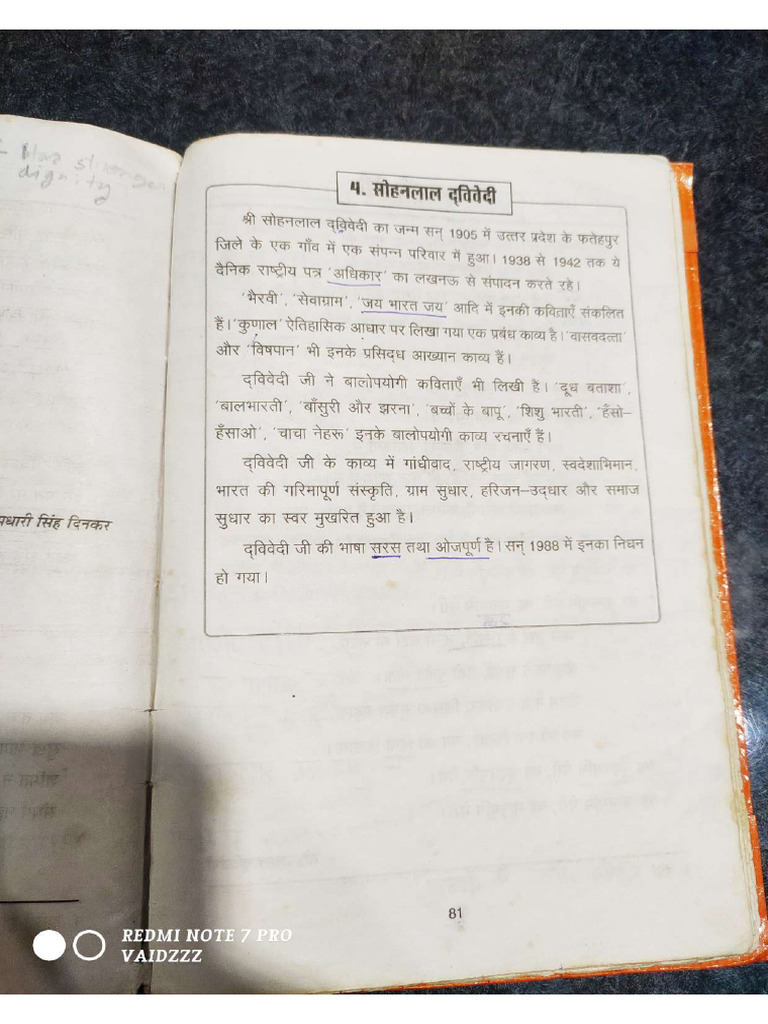 dignity
४. सोहनलाल द्विवेदी
श्री सोहनलाल द्विवेदी का जन्म सन् 1905 में उत्तर प्रदेश के फतेहपुर
जिले के एक गाँव में एक संपन्न परिवार में हुआ। 1938 से 1942 तक ये
दैनिक राष्ट्रीय पत्र 'अधिकार' का लखनऊ से संपादन करते रहे।
'भैरवी', 'सेवाग्राम', 'जय भारत जय' आदि में इनकी कविताएँ संकलित
हैं। 'कुणाल' ऐतिहासिक आधार पर लिखा गया एक प्रबंध काव्य है। 'वासवदत्ता'
और 'विषपान' भी इनके प्रसिद्ध आख्यान काव्य हैं।
द्विवेदी जी ने बालोपयोगी कविताएँ भी लिखी हैं। 'दूध बताशा',
'बालभारती', 'बाँसुरी और झरना', 'बच्चों के बापू', 'शिशु भारती', 'हँसो-
हँसाओ', 'चाचा नेहरू' इनके बालोपयोगी काव्य रचनाएँ हैं।
द्विवेदी जी के काव्य में गांधीवाद, राष्ट्रीय जागरण, स्वदेशाभिमान,
भारत की गरिमापूर्ण संस्कृति, ग्राम सुधार, हरिजन-उद्धार और समाज
सुधार का स्वर मुखरित हुआ है।
द्विवेदी जी की भाषा सरस तथा ओजपूर्ण है। सन् 1988 में इनका निधन
हो गया।
धारी सिंह दिनकर
81
REDMI NOTE 7 PRO
VAIDZZZ